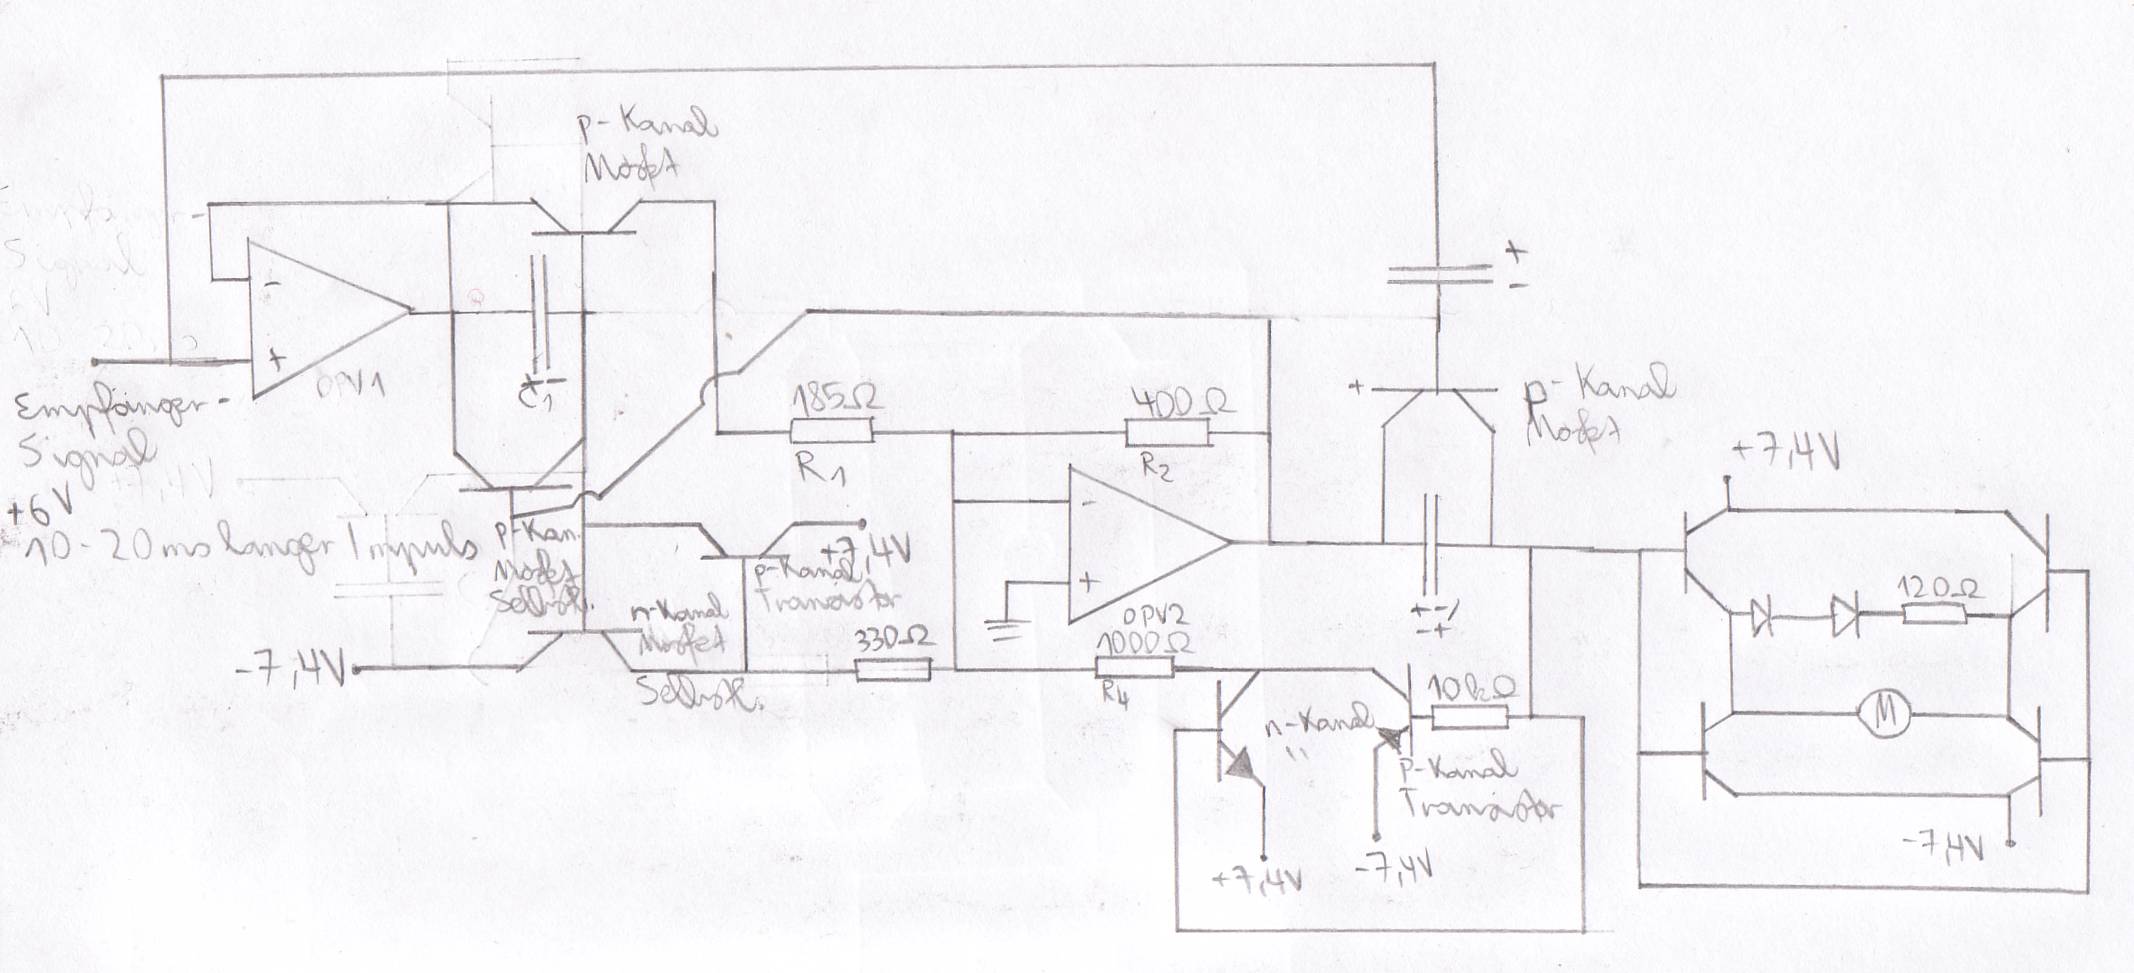 p-Kanal
Mosfet
-
+
OPV1
C1
+-
Empfänger-
Signal
+6V
10-20ms langer Impuls
+
-
+
p-Kanal
Mosfet
185Ω
R1
400Ω
R2
-
+
OPV2
+-/
-+
+7,4V
120Ω
M
-7,4V
p-Kan.
Mosfet
Selbstl.
+7,4V
p-Kanal
Transistor
n-Kanal
Mosfet
Selbstl.
-7,4V
330Ω
1000Ω
R4
10kΩ
n-Kanal
"
p-Kanal
Transistor
+7,4V
-7,4V